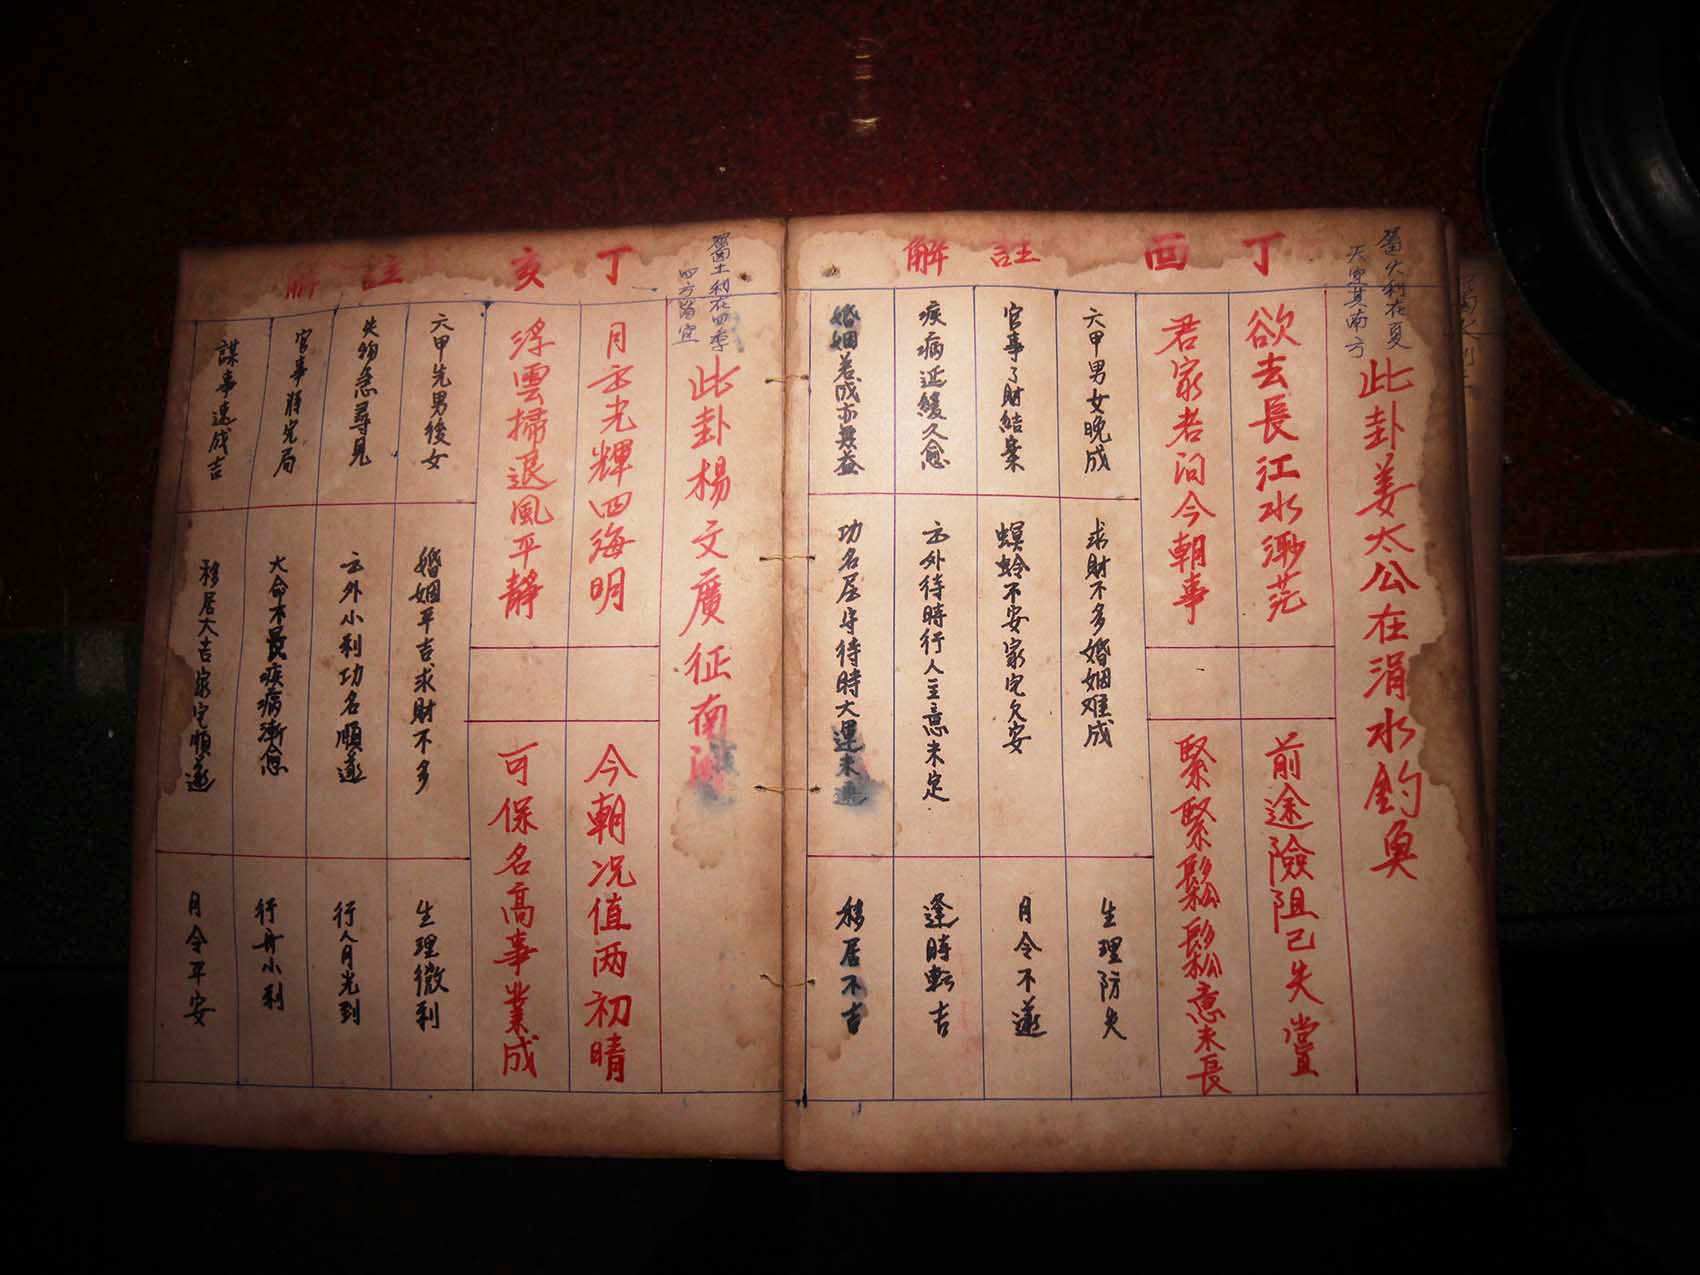 丁酉註解
屬火利在夏
此卦姜太公在渭水釣魚
欲去長江水渺茫
前途險阻已失當
君家若問今朝事
緊緊鬆鬆意未長
六甲男女晚成
官事了財結案
疾病延緩久愈
婚姻若成亦無益
求財不多婚姻难成
螟蛉不安家宅欠安
出外待時行人主意未定
功名居守待時大運未通
生理防失
月令不遂
逢時転吉
移居不吉
丁亥註解
屬土利在四季
四方皆宜
此卦楊文廣征南
月出光輝四海明
今朝况值两初晴
浮雲掃退風平靜
可保名高事業成
六甲先男後女
失物急尋見
官事將完局
謀事速成吉
婚姻平吉求財不多
出外小利功名順遂
大命不長疾病漸愈
移居大吉家宅順遂
生理微利
行人月光到
行舟小利
月令平安